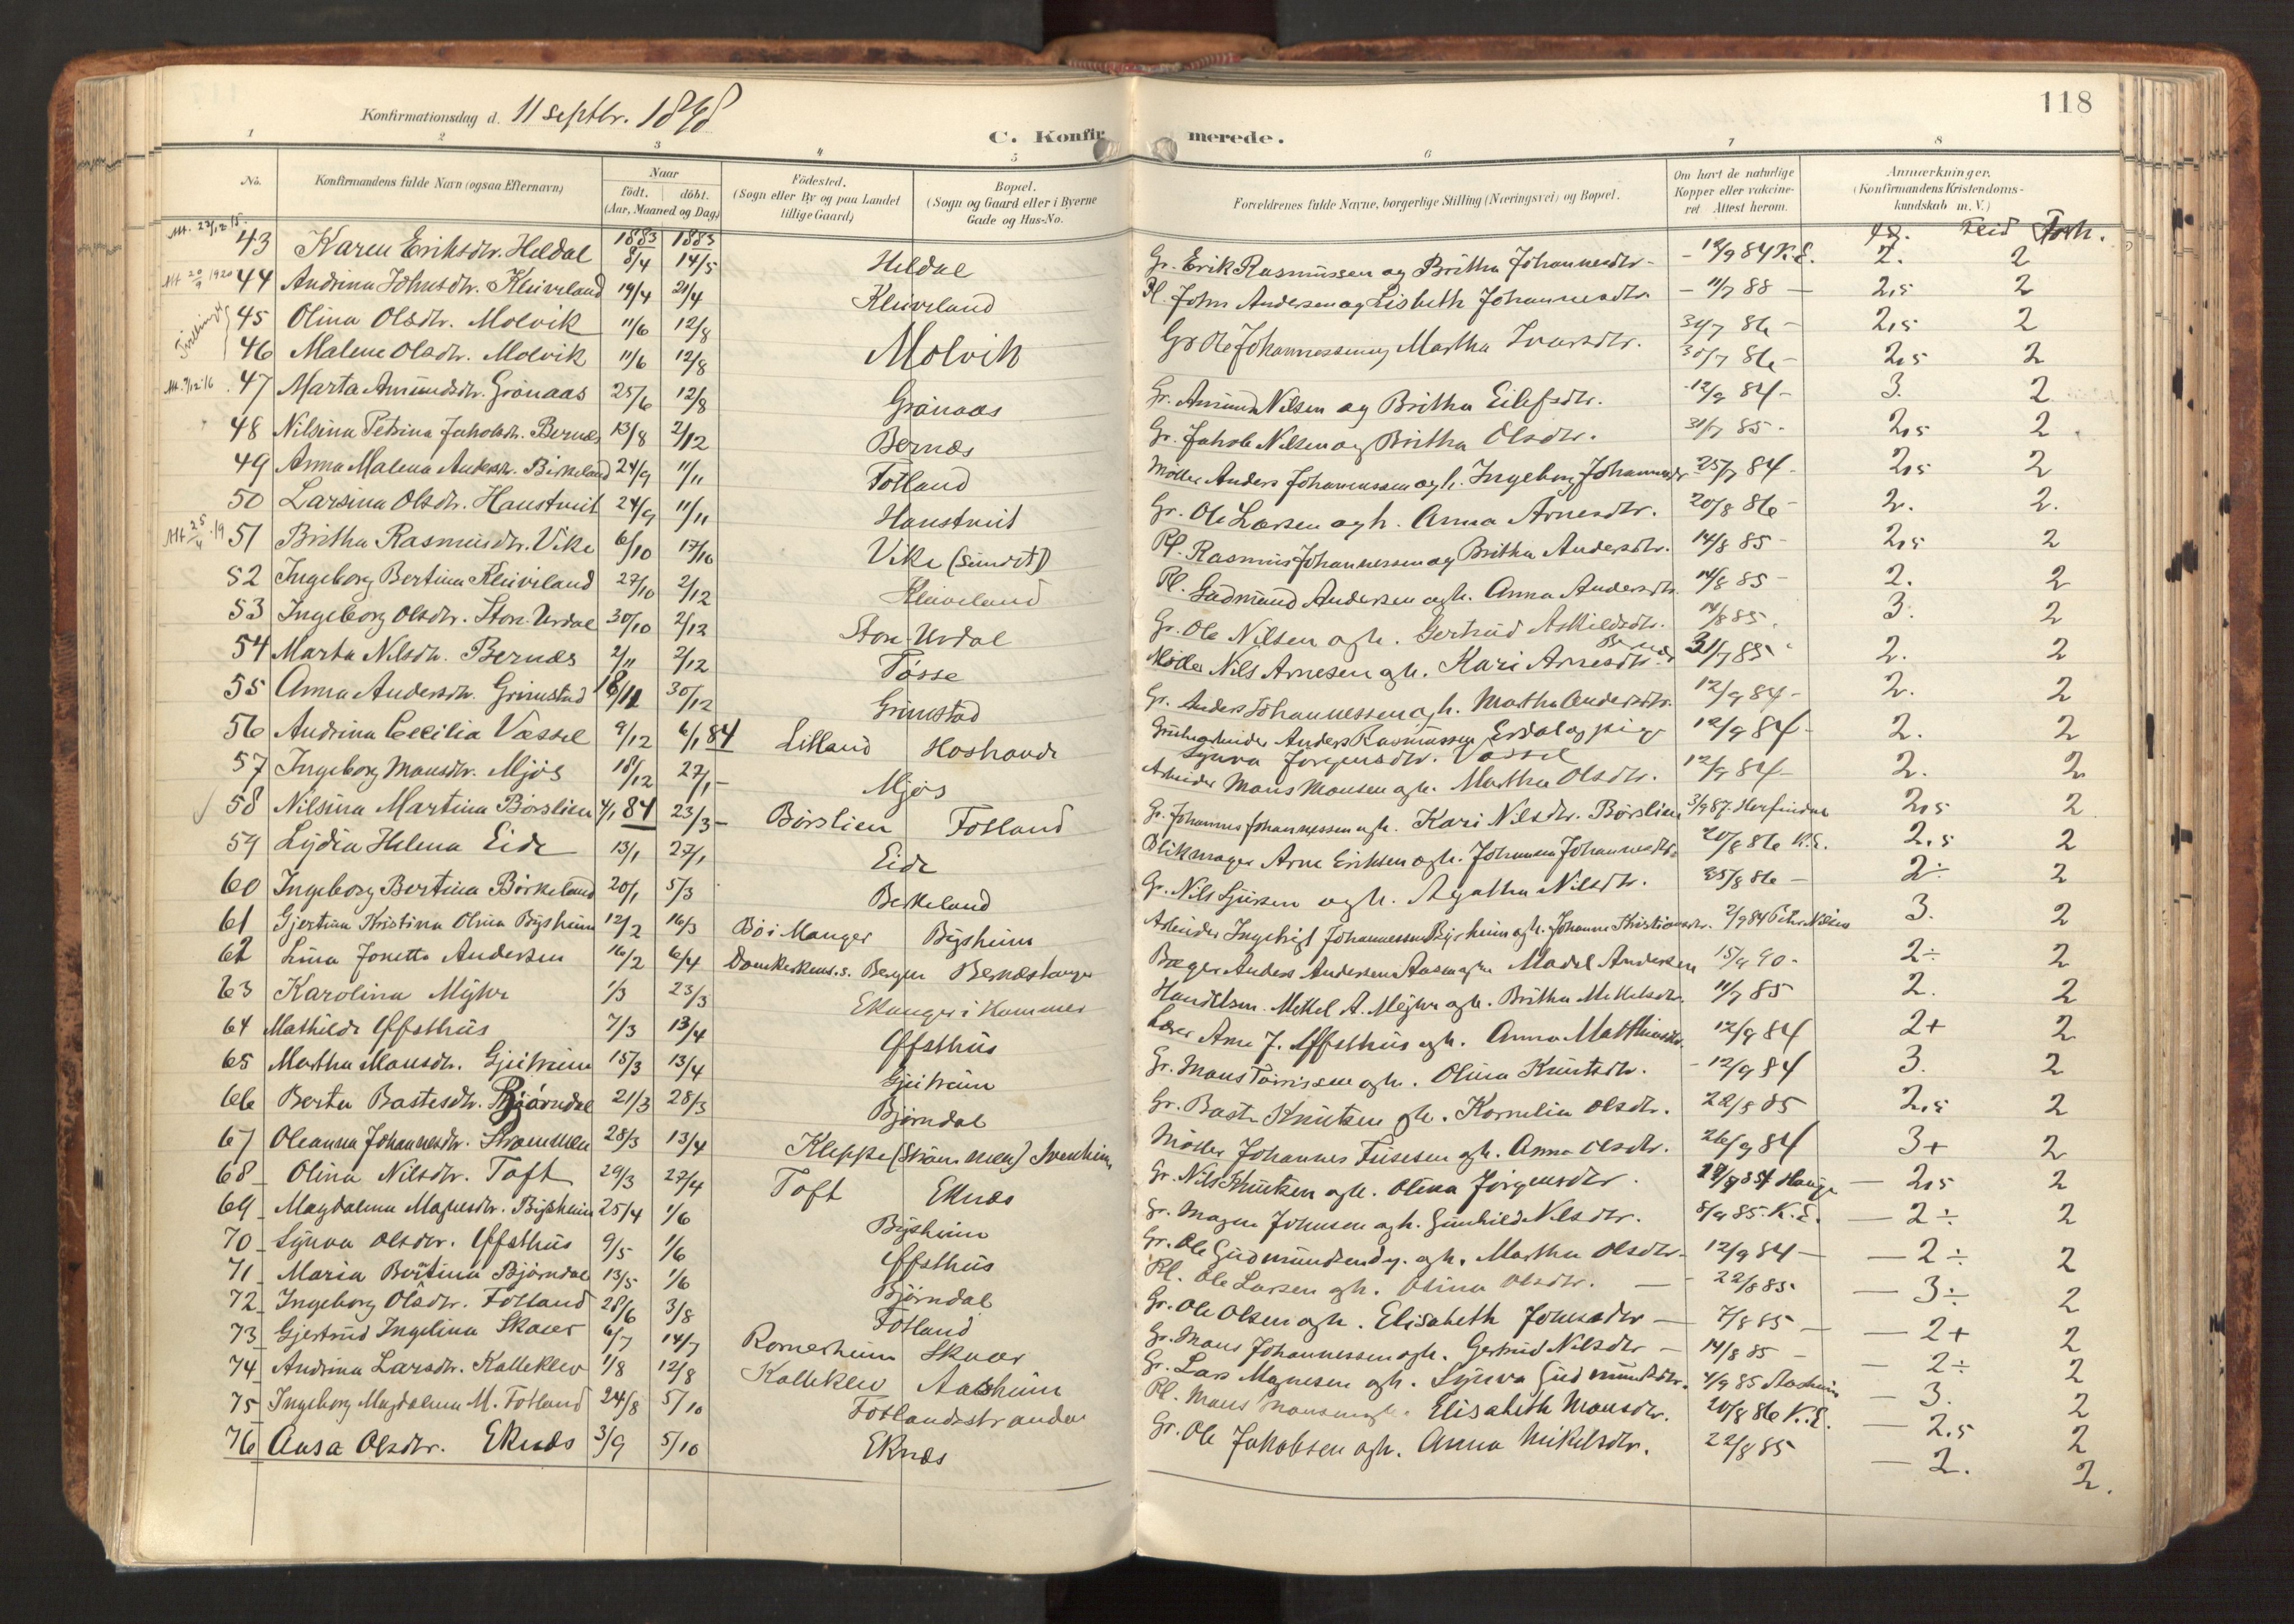 118
Konfirmationsdag d. 11 septbr. 1898
C. Konfirmerede.
1 2 3 4 5 6 7 8
No. Konfirmandens fulde Navn (ogsaa Efternavn) Naar født. døbt. (Aar, Maaned og Dag) Fødested. (Sogn eller By og paa Landet tillige Gaard) Bopæl. (Sogn og Gaard eller i Byerne Gade og Hus-No. Forældrenes fulde Navne, borgerlige Stilling (Næringsvei) og Bopæl. Om havt de naturlige Kopper eller vaccineret Attest herom. Anmærkninger. (Konfirmandens Kristendomskundskab m. V.)
Flid Forh.
43 Karen Eriksdtr. Heldal 1883 8/4 1883 14/5 Heldal Gr. Erik Rasmussen og Britha Johannesdtr. 12/9 84 K.E. 2. 2
44 Andrina Johnsdtr. Kleiveland 19/4 21/4 Kleiveland Pl. John Andersen og Lisbeth Johannesdtr. 11/7 88 2,5 2
Tvillinger
45 Olina Olsdtr. Molvik 11/6 12/8 2,5 2
46 Malene Olsdtr. Molvik 11/6 12/8 Molvik Gr Ole Johannessen og Martha Ivarsdtr. 30/7 86 2,5 2
47 Marta Amundsdtr. Grønaas 25/6 12/8 Grønaas Gr. Amund Nilsen og Britha Eilefsdtr. 12/9 84 3. 2
48 Nilsina Petrina Jakobsdtr. Bernæs 13/8 2/12 Bernæs Gr. Jakob Nilsen og Britha Olsdtr. 31/7 85 2,5 2
49 Anna Malena Andersdtr. Birkeland 24/9 11/11 Fotland Møller Anders Johannessen og h. Ingeborg Johannesdtr 25/7 84 2,5 2
50 Larsina Olsdtr. Haustveit 24/9 11/11 Haustveit Gr. Ole Larsen og h. Anna Arnesdtr. 20/8 86 2. 2.
51 Britha Rasmusdtr. Vike 6/10 17/10 Vike (Sundet) Pl. Rasmus Johannessen og Britha Andersdtr. 14/8 85 2,5 2
52 Ingeborg Bertina Kleiveland 27/10 2/12 Kleiveland Pl. Gudmund Andersen og h. Anna Andersdtr. 14/8 85 2. 2
53 Ingeborg Olsdtr. Store-Urdal 30/10 2/12 Store-Urdal Gr. Ole Nilsen og h. Gertrud Askildsdtr. 14/8 85. 3. 2
54 Marta Nilsdtr. Bernæs 2/11 2/12 Tøsse Møller Nils Arnesen og h. Kari Arnesdtr. Bernæs 31/7 85 2. 2
55 Anna Andersdtr. Grimstad 18/11 30/12 Grimstad Gr. Anders Johannessen og h. Martha Andersdtr. 12/9 84 2. 2
56 Andrina Cecilia Vassel 9/12 6/1 84 Litland Hoshovde Anders Rasmussen Erdal og pige Synva Jørgensdtr. Vassel 12/9 84 2. 2
57 Ingeborg Monsdtr. Mjøs 18/12 27/1 Mjøs Arbeider Mons Monsen og h. Martha Olsdtr. 12/9 84 2. 2
58 Nilsina Martina Børslien 4/1 84 23/3 Børslien Fotland Gr. Johannes Johannessen og h. Kari Nilsdtr. Børslien 3/9 87 Herfindal 2,5 2
59 Lydia Helena Eide 13/1 27/1 Eide Blikmager Arne Eriksen og h. Johanna Johannesdtr. 20/8 86 K.E. 2,5 2
60 Ingeborg Bertina Birkeland 20/1 5/3 Berkeland Gr. Nils Sjursen og h. Agatha Nilsdtr. 25/8 86 2÷ 2
61 Gjertina Kristina Olina Bysheim 12/2 16/3 Bø i Manger Bysheim Arbeider Ingebrigt Johannessen Bysheim og h. Johanne Kristiansdtr. 2/9 84 Peter Nilsen 3. 2
62 Lina Jonette Andersen 16/2 6/4 Domkirkens s. Bergen Bernæstangen Bager Anders Andersen Aase og h. Madel Andersen 15/9 90 2÷ 2
63 Karolina Myhr 1/3 23/3 Ekanger i Hammer Handelsm. Mikkel A. Myhr og h. Britha Mikkelsdtr. 11/7 85 2. 2
64 Mathilde Offsthus 7/3 13/4 Offsthus Lærer Arne J. Offsthus og h. Anna Mathiasdtr. 12/9 84 2+ 2
65 Martha Monsdtr. Gjeitreim 15/3 13/4 Gjeitreim Gr. Mons Torrissen og h. Olina Knutsdtr. 12/9 84 3. 2
66 Berta Bastesdtr. Bjørndal 21/3 28/3 Bjørndal Gr. Baste Knutsen og h. Kornelia Olsdtr. 22/8 85 2,5 2
67 Oleanna Johannesdtr. Strømmen 28/3 13/4 Kleppe (Strømmen) Sveheim Møller Johannes og h. Anna Olsdtr. 26/9 84 3+ 2
68 Olina Nilsdtr. Toft 29/3 27/4 Toft Eknæs Gr. Nils Knutsen og h. Olina Jørgensdtr. Hauge 2,5 2
69 Magdalena Magnesdtr. Bysheim 25/4 1/6 Bysheim Gr. Magne Johnsen og h. Gunhild Nilsdtr. 8/9 85. K.E. 2÷ 2
70 Synva Olsdtr. Offsthus 9/5 1/6 Offsthus Gr. Ole Gudmundsen og h. Martha Olsdtr. 12/9 84 2÷ 2
71 Maria Bertina Bjørndal 13/5 1/6 Bjørndal Pl. Ole Larsen og h. Olina Olsdtr. 22/8 85 3÷ 2
72 Ingeborg Olsdtr. Fotland 28/6 3/8 Fotland Gr. Ole Olsen og h. Elisabeth Jonasdtr 7/8 85 2+ 2
73 Gjertrud Ingelina Skaar 6/7 14/7 Romerheim Skaar Gr. Mons Johannessen og h. Gertrud Nilsdtr 14/8 85 2÷ 2
74 Andrina Larsdtr. Kalleklev 1/8 12/8 Kalleklev Aasheim Gr. Lars Magnesen og h. Synva Gudmundsdtr. 4/9 85 Aasheim 3. 2
75 Ingeborg Magdalena M. Fotland 24/8 5/10 Fotlandsstranden Pl. Mons Monsen og h. Elisabeth Monsdtr. 20/8 86 K.E. 2,5 2
76 Ansa Olsdtr. Eknæs 3/9 5/10 Eknæs Gr. Ole Jakobsen og h. Anna Mikelsdtr. 22/8 85 2. 2.